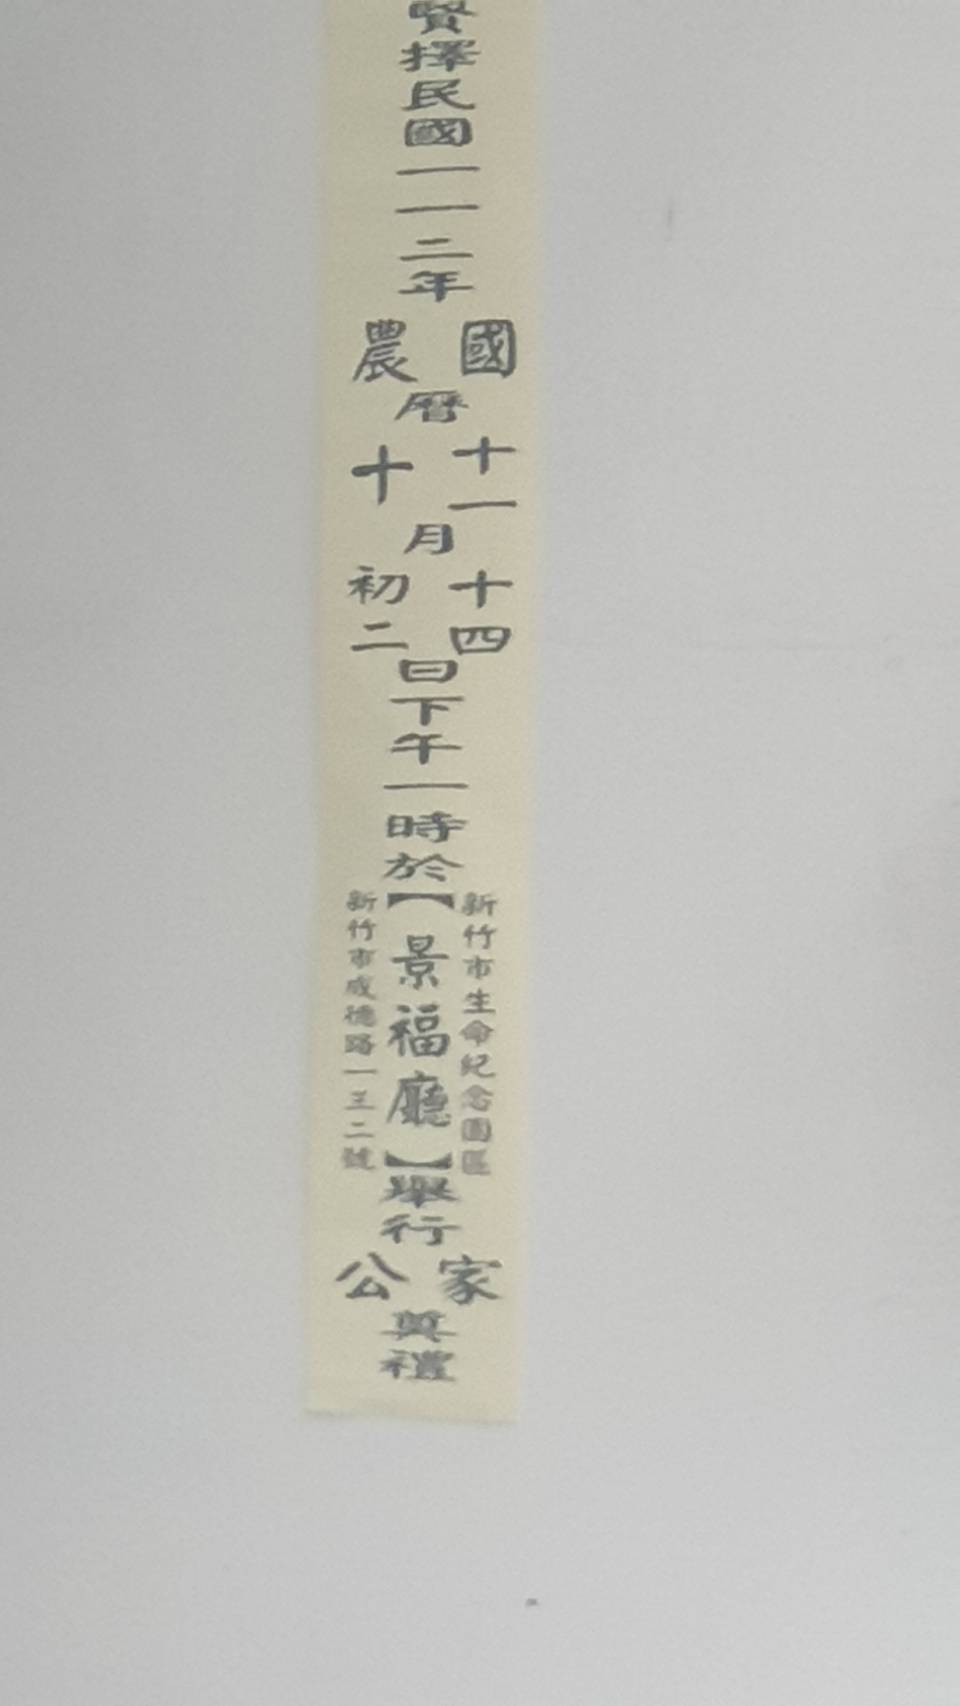 賢擇民國一一二年
國
農
曆
十一
十
月
十四
初二
日下午一時於
新竹市生命紀念園區
【景福廳】
新竹市成德路一三二號
舉行
家
公
奠禮